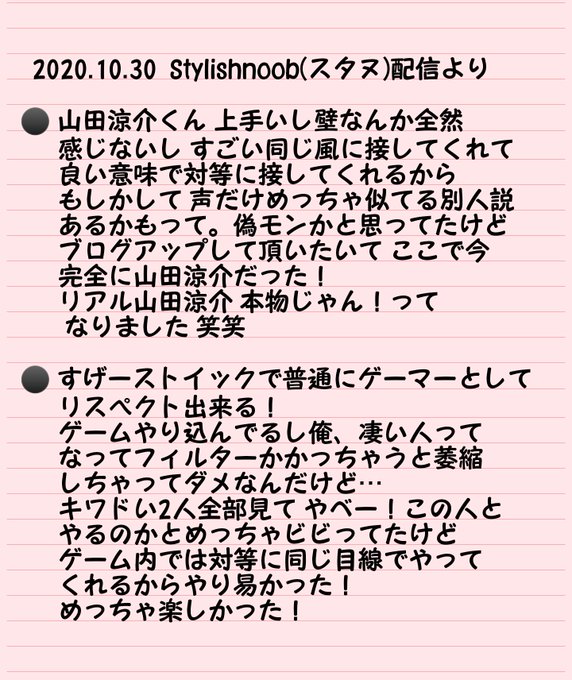 2020.10.30 Stylishnoob(スタヌ)配信より
●山田涼介くん 上手いし壁なんか全然
感じないし すごい同じ風に接してくれて
良い意味で対等に接してくれるから
もしかして 声だけめっちゃ似てる別人説
あるかもって。偽モンかと思ってたけど
ブログアップして頂いたいて ここで今
完全に山田涼介だった！
リアル山田涼介 本物じゃん！って
なりました 笑笑
●すげーストイックで普通にゲーマーとして
リスペクト出来る！
ゲームやり込んでるし俺、凄い人って
なってフィルターかかっちゃうと萎縮
しちゃってダメなんだけど…
キワドい2人全部見て やべー！この人と
やるのかとめっちゃビビってたけど
ゲーム内では対等に同じ目線でやって
くれるからやり易かった！
めっちゃ楽しかった！